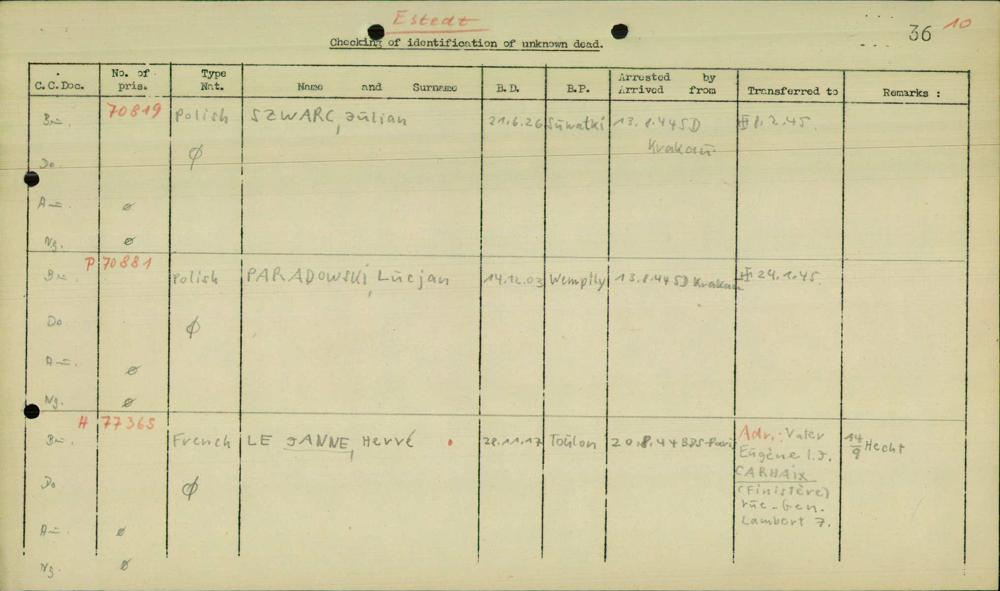 Estedt
Checking of identification of unknown dead.
36 10
C.C.Doc. No. of pris. Type Nat. Name and Surname B.D. B.P. Arrested by Arrived from Transferred to Remarks :
Bu. 70819 Polish SZWARC, Julian 21.6.26 Suwatki 13.8.44 SD Krakau III 8.2.45.
Do ø
Au.. ø
Ng. ø
P 70881
Bu. Polish PARADOWSKI, Lucjan 14.12.03 13.8.44 SD Krakau III 29.1.45.
Do ø
Au.. ø
Ng. ø
H 77365
Bu. French LE JANNE, Hervé 28.11.17 Toulon 20.8.44 BDS-Paris Adr.: Vater 14/9 Hecht
Eugène l. J.
CARHAIX
Do ø (Finistère)
rue-Gen.
Lambert 7.
Au.. ø
Ng. ø